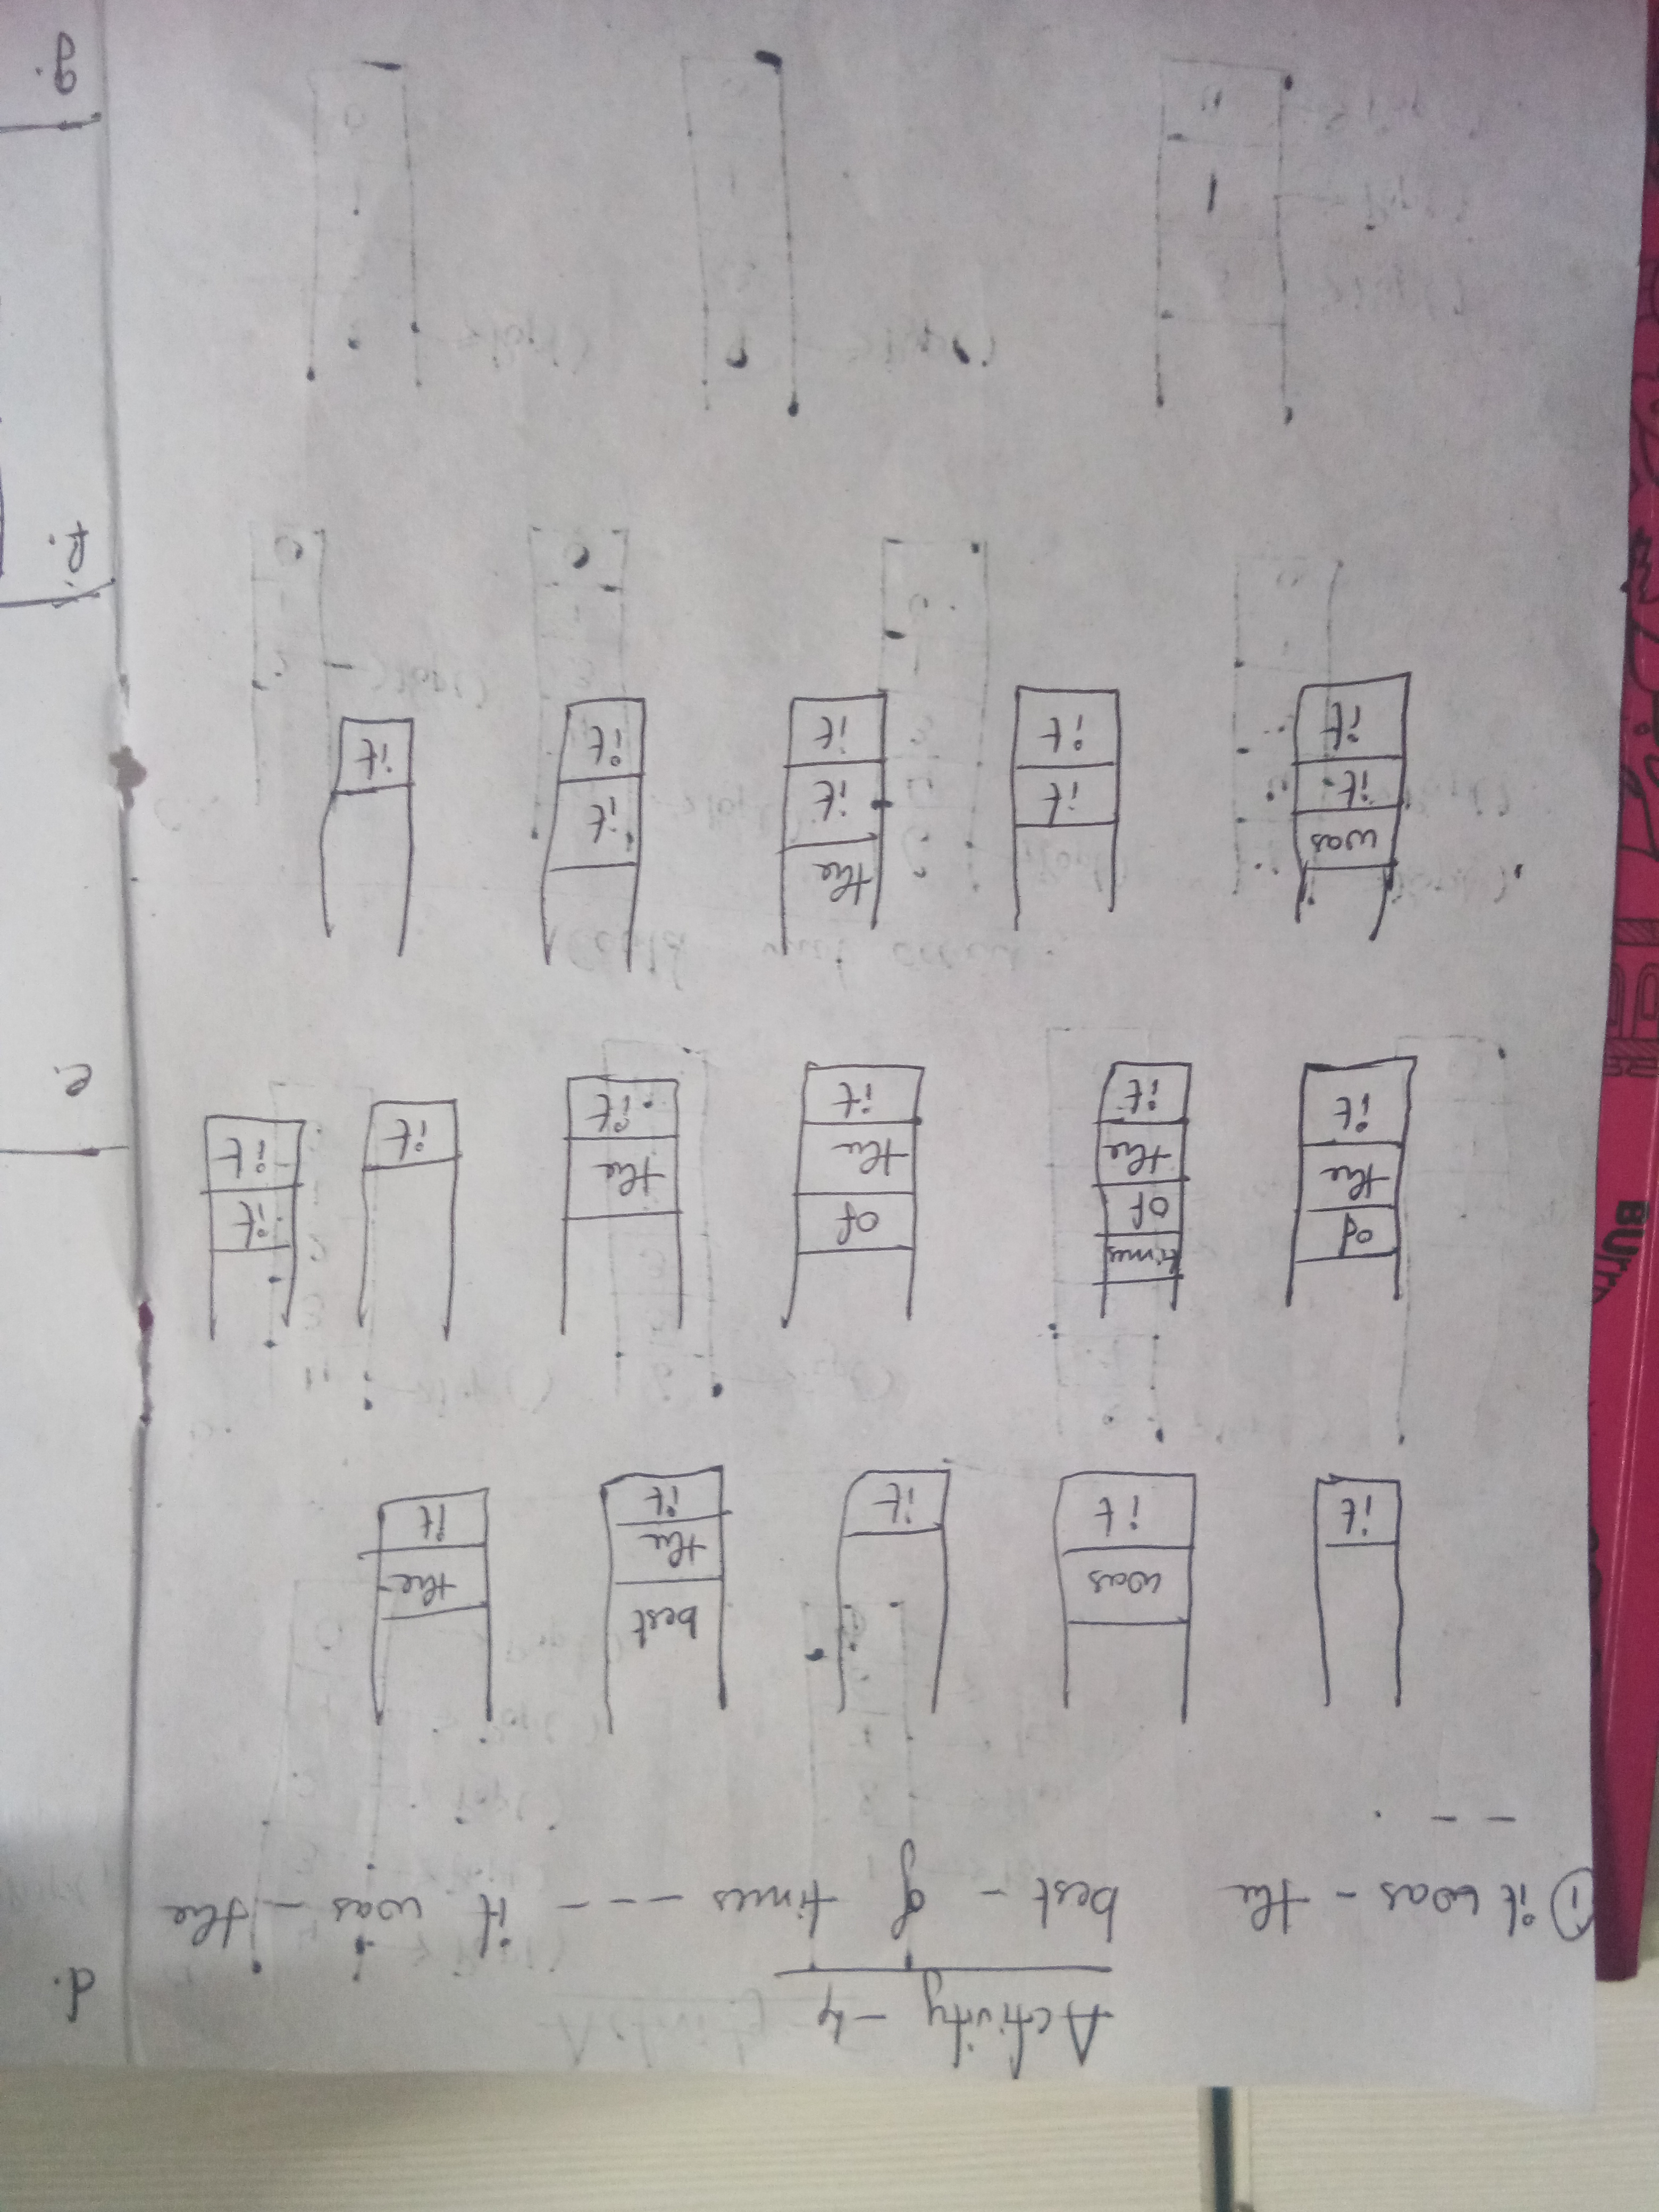 Activity - 4
① it was - the best - of times --- it was - the
-- .
it
was
it
it
best
the
it
the
it
of
the
it
times
of
the
it
of
the
it
the
it
it
it
it
was
it
it
it
it
the
it
it
it
it
it
d.
e.
f.
g.